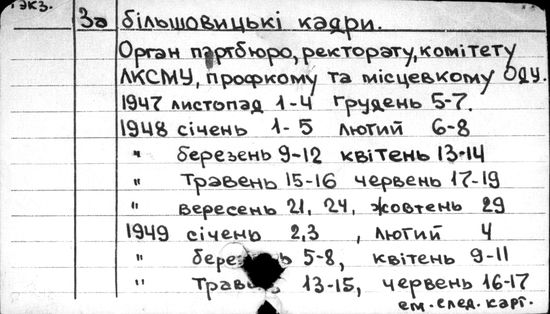 екз.
За більшовицькі кадри.
Орган партбюро, ректорату, комітету
ЛКСМУ, профкому та місцевкому ОДУ.
1947 листопад 1-4 грудень 5-7.
1948 січень 1-5 лютий 6-8
" березень 9-12 квітень 13-14
" травень 15-16 червень 17-19
" вересень 21, 24, жовтень 29
1949 січень 2,3, лютий 4
" 5-8, квітень 9-11
" 13-15, червень 16-17
см. след. карт.